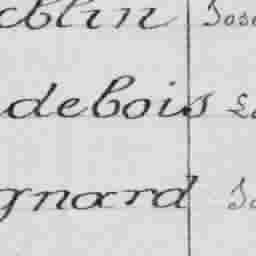 cblin Jose
debois
gnard